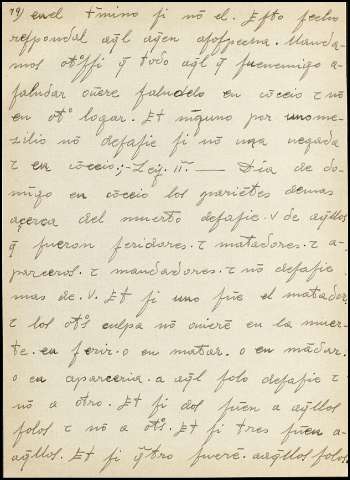 79) en el tmino si nõ el. Esto fecho
respondal aq̃l aq̃en asospecha. Manda-
mos otossi q̃ todo aq̃l q̃ su enemigo a-
saludar ouiere saludelo en cõceio τ nõ
en ot⁰ logar. Et ninguno por un ome-
zilio nõ desafie si nõ una uegada
τ en cõceio;- Leẏ. ii. — Dia de do-
mĩgo en cõceio los pariẽtes demas
açerca del muerto desafie .v de aq̃llos
q̃ fueron feridores. τ matadores. τ a-
parceros. τ mandadores. τ nõ desafie
mas de .v. Et si uno fue el matador
τ los ot⁰s culpa nõ ouierẽ en la muer-
te. en ferir. o en matar. o en mãdar.
o en aparceria. a aq̃l solo desafie τ
nõ a otro. Et si dos fuẽn a aq̃llos
solos τ nõ a ot⁰s. Et si tres fuẽn a-
aq̃llos. Et si q̃tro fuerẽ. aaq̃llos solos.